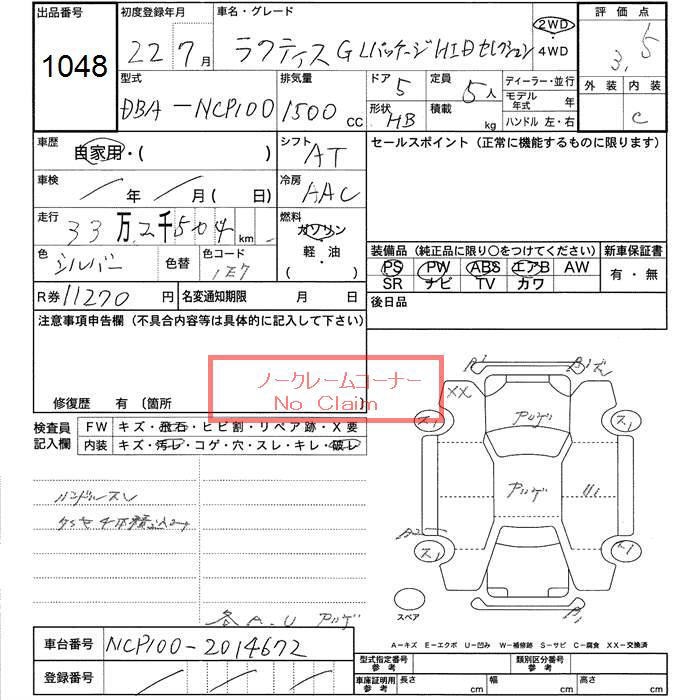 出品番号 初度登録年月 車名・グレード 評価点
1048 22 7月 ラクティス G Lパッケージ HIDセレクション 2WD・4WD 3.5
型式 排気量 ドア 5 定員 5人 ディーラー・並行 外装 内装
DBA-NCP100 1500cc 形状 HB 積載 kg モデル年式 年 C
ハンドル 左・右
車歴 自家用・( ) シフト AT セールスポイント (正常に機能するものに限ります)
車検 / 年 / 月(日) 冷房 AAC
走行 33万2千504km 燃料 ガソリン
軽・油
( )
色 シルバー 色替 色コード 1E7 装備品 (純正品に限り○をつけてください) 新車保証書
PS PW ABS エアB AW 有・無
SR ナビ TV カワ
R券 11270円 名変通知期限 月 日 後日品
注意事項申告欄 (不具合内容等は具体的に記入して下さい)
ノークレームコーナー
No Claim
修復歴 有 〔箇所
検査員記入欄 FW キズ・飛石・ヒビ割・リペア跡・X要
内装 キズ・汚レ・コゲ・穴・スレ・キレ・破レ
ハンドルスレ
各A.U アリゲ
XX
アリゲ
アリゲ
U1
スペア
A-キズ E-エクボ U-凹み W-補修跡 S-サビ C-腐食 XX-交換済
車台番号 NCP100-2014672
登録番号
型式指定番号 参考 類別区分番号 参考
車庫証明用 参考 長さ cm 幅 cm 高さ cm